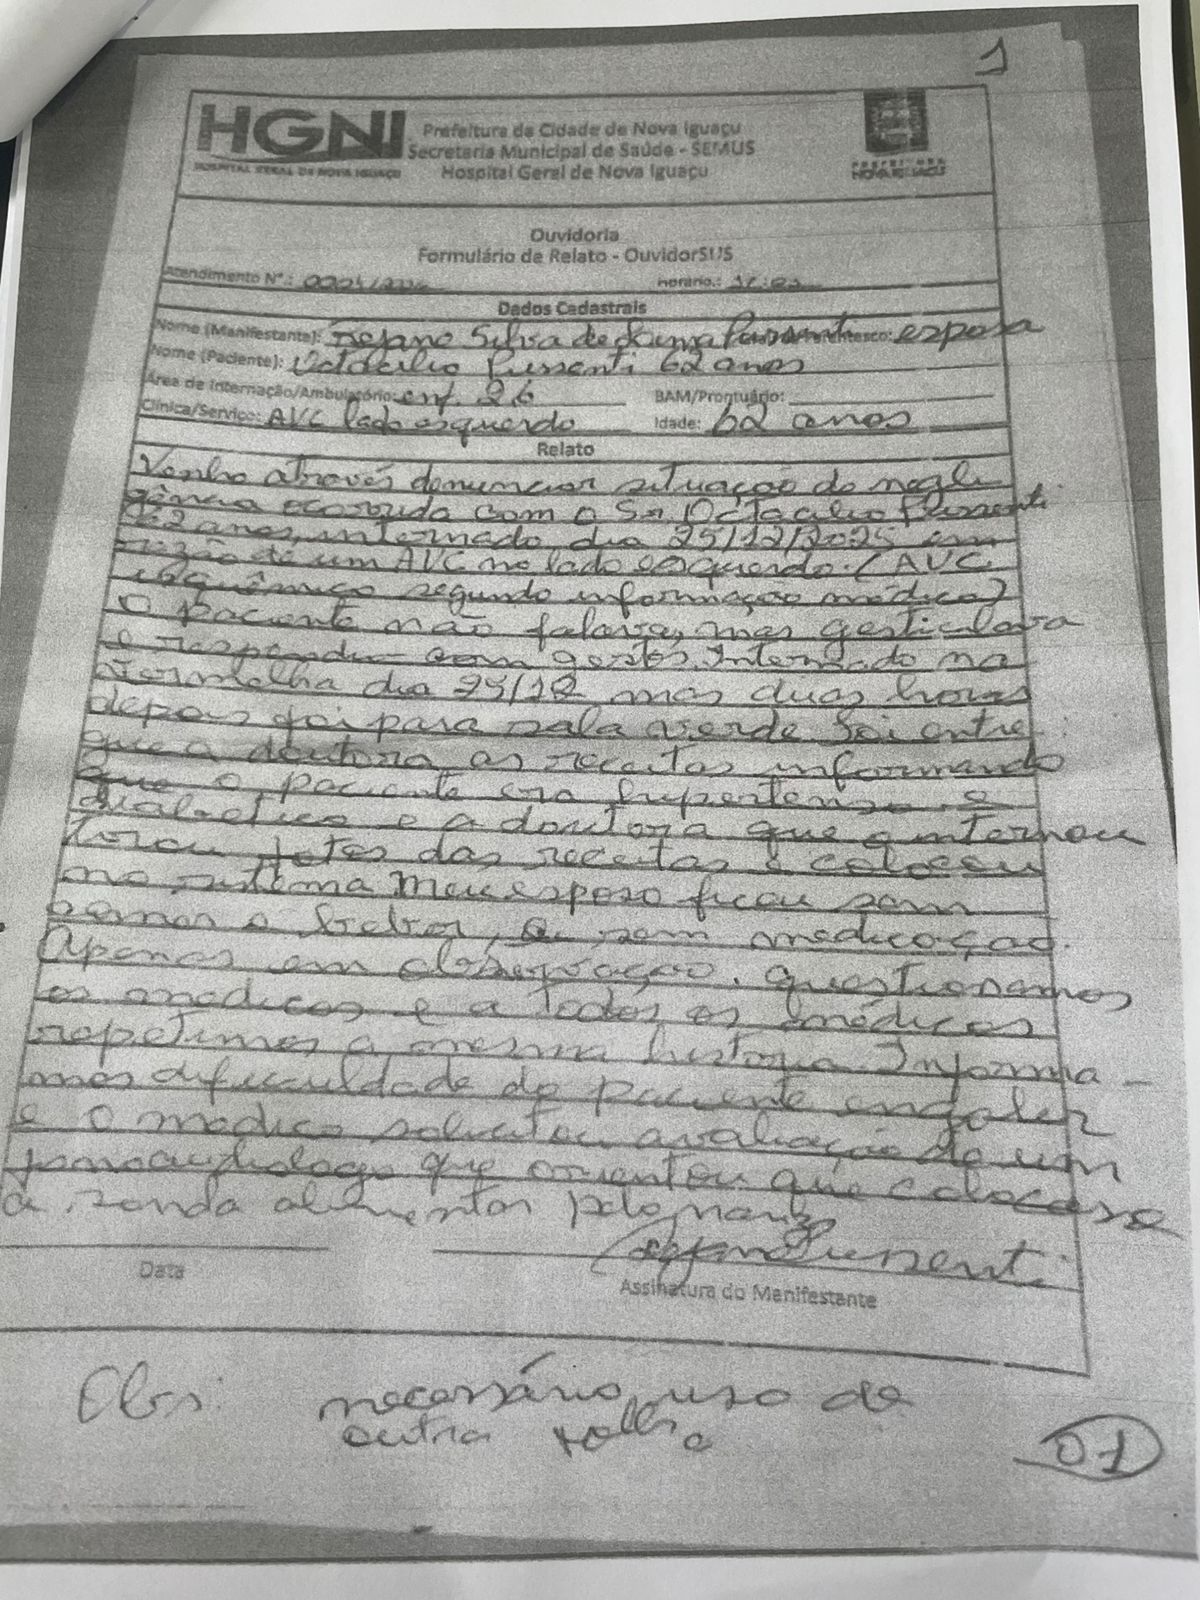 1
HGNI
HOSPITAL GERAL DE NOVA IGUAÇU
Prefeitura da Cidade de Nova Iguaçu
Secretaria Municipal de Saúde - SEMUS
Hospital Geral de Nova Iguaçu
PREFEITURA
NOVA IGUAÇU
Ouvidoria
Formulário de Relato - OuvidorSUS
Atendimento Nº.: Horário.:
Dados Cadastrais
Nome (Manifestante): Rejane Silva de Souza esposa
Nome (Paciente): Octacilio Pussenti 62 anos
Área de Internação/Ambulatório: enf. 26 BAM/Prontuário:
Clínica/Serviço: AVC lado esquerdo Idade: 62 anos
Relato
Venho através denunciar situação de negli
gência ocorrida com o Sr Octacilio Pussenti
62 anos, internado dia 25/12/2025 em
razão de um AVC no lado esquerdo. (AVC
isquêmico segundo informação médica)
O paciente não falava, mas gesticulava
e respondia com gestos. Internado na
vermelha dia 25/12 mas duas horas
depois foi para sala verde foi entre
gue a doutora as receitas informando
que o paciente era hipertenso e
diabetico e a doutora que o internou
tirou fotos das receitas e colocou
no sistema Meu esposo ficou sem
comer e beber, e sem medicação.
Apenas em observação. questionamos
os médicos e a todos os médicos
repetimos a mesma historia. Informa-
mos dificuldade do paciente engolir
e o médico solicitou avaliação de um
fonoaudiologo que orientou que colocasse
a sonda alimentar pelo nariz
Data
Assinatura do Manifestante
Obs: necessário uso de
outra folha
01